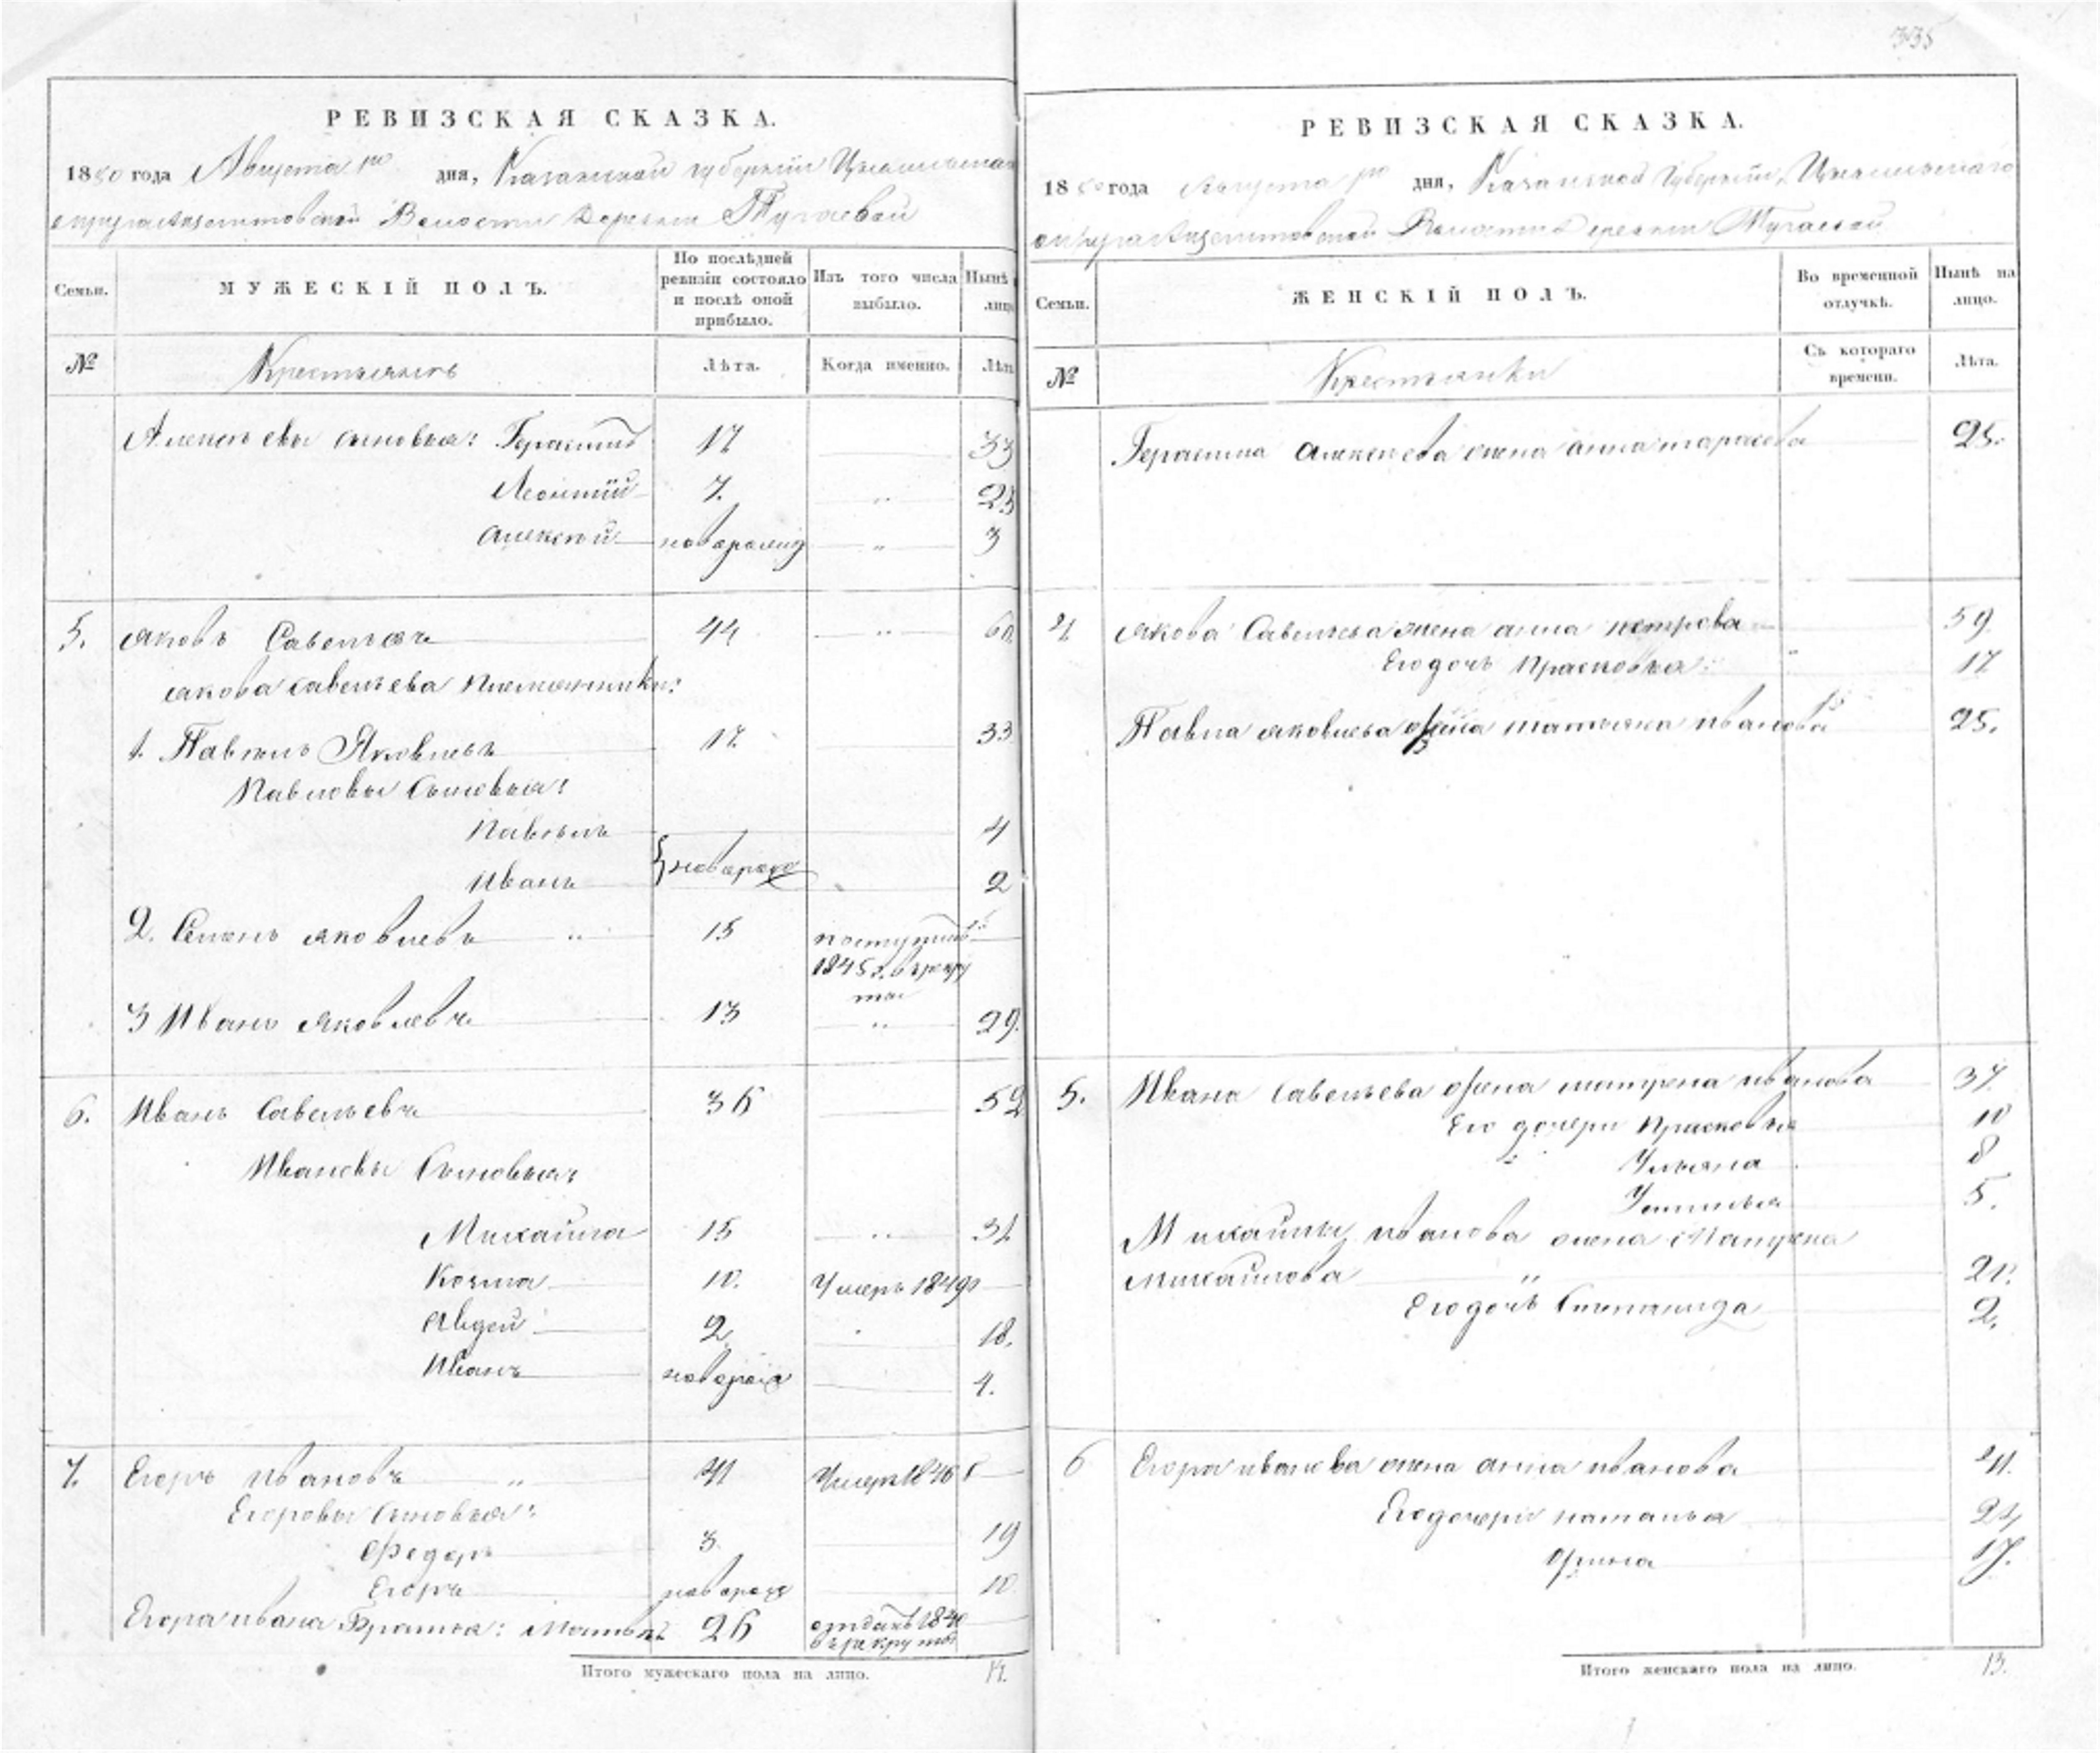 335
РЕВИЗСКАЯ СКАЗКА.
1850 года Августа дня, Казанской губернии Цивильскаго
округа Волости Деревни Тугаевой
Семьи. МУЖЕСКІЙ ПОЛЪ. По послѣдней ревизіи состояло и послѣ оной прибыло. Изъ того числа выбыло. Нынѣ лицо
№ Крестьянъ Лѣта. Когда именно. Лѣта
Алексѣевы сыновья: Герасимъ 17 33
Леонтій 7. 23
Алексѣй новорожд 3
5. Яковъ Савельевъ 44 60
Якова Савельева племянники:
1. Павелъ Яковлевъ 17 33
Павловы сыновья:
Павелъ 4
новорожд
Иванъ 2
2. Семенъ Яковлевъ 15 поступилъ
1845 г. в рекру
ты
3 Иванъ Яковлевъ 13 29.
6. Иванъ Савельевъ 36 52
Ивановы Сыновья:
Михайла 15 31
Козма 10. Умеръ 1849
Авдей 2 18.
Иванъ новорожд 4.
7. Егоръ Ивановъ 41 Умеръ 1846
Егоровы сыновья:
Федоръ 3 19
Егоръ новорожд 10
Егора Ивана братья: Матвѣй 26 отданъ 1840
в рекруты
Итого мужескаго пола на лицо. 14.
РЕВИЗСКАЯ СКАЗКА.
1850 года Августа дня, Казанской Губерніи, Цивильскаго
округа Волости деревни Тугаевой
Семьи. ЖЕНСКІЙ ПОЛЪ. Во временной отлучкѣ. Нынѣ на лицо.
№ Крестьянки Съ котораго времени. Лѣта.
Герасима Алексѣева жена Анна Тарасова 25.
4. Якова Савельева жена Анна Петрова 59.
Его дочь Прасковья: 17
Павла Яковлева жена Татьяна Иванова 25.
5. Ивана Савельева жена Матрена Иванова 37.
Его дочери Прасковья 10
Ульяна 8
Устинья 5.
Михайлы Иванова жена Матрена
Михайлова 21.
Его дочь Степанида 2.
6 Егора Иванова жена Анна Иванова 41.
Его дочери Наталья 24
Орина 17.
Итого женскаго пола на лицо. 13.